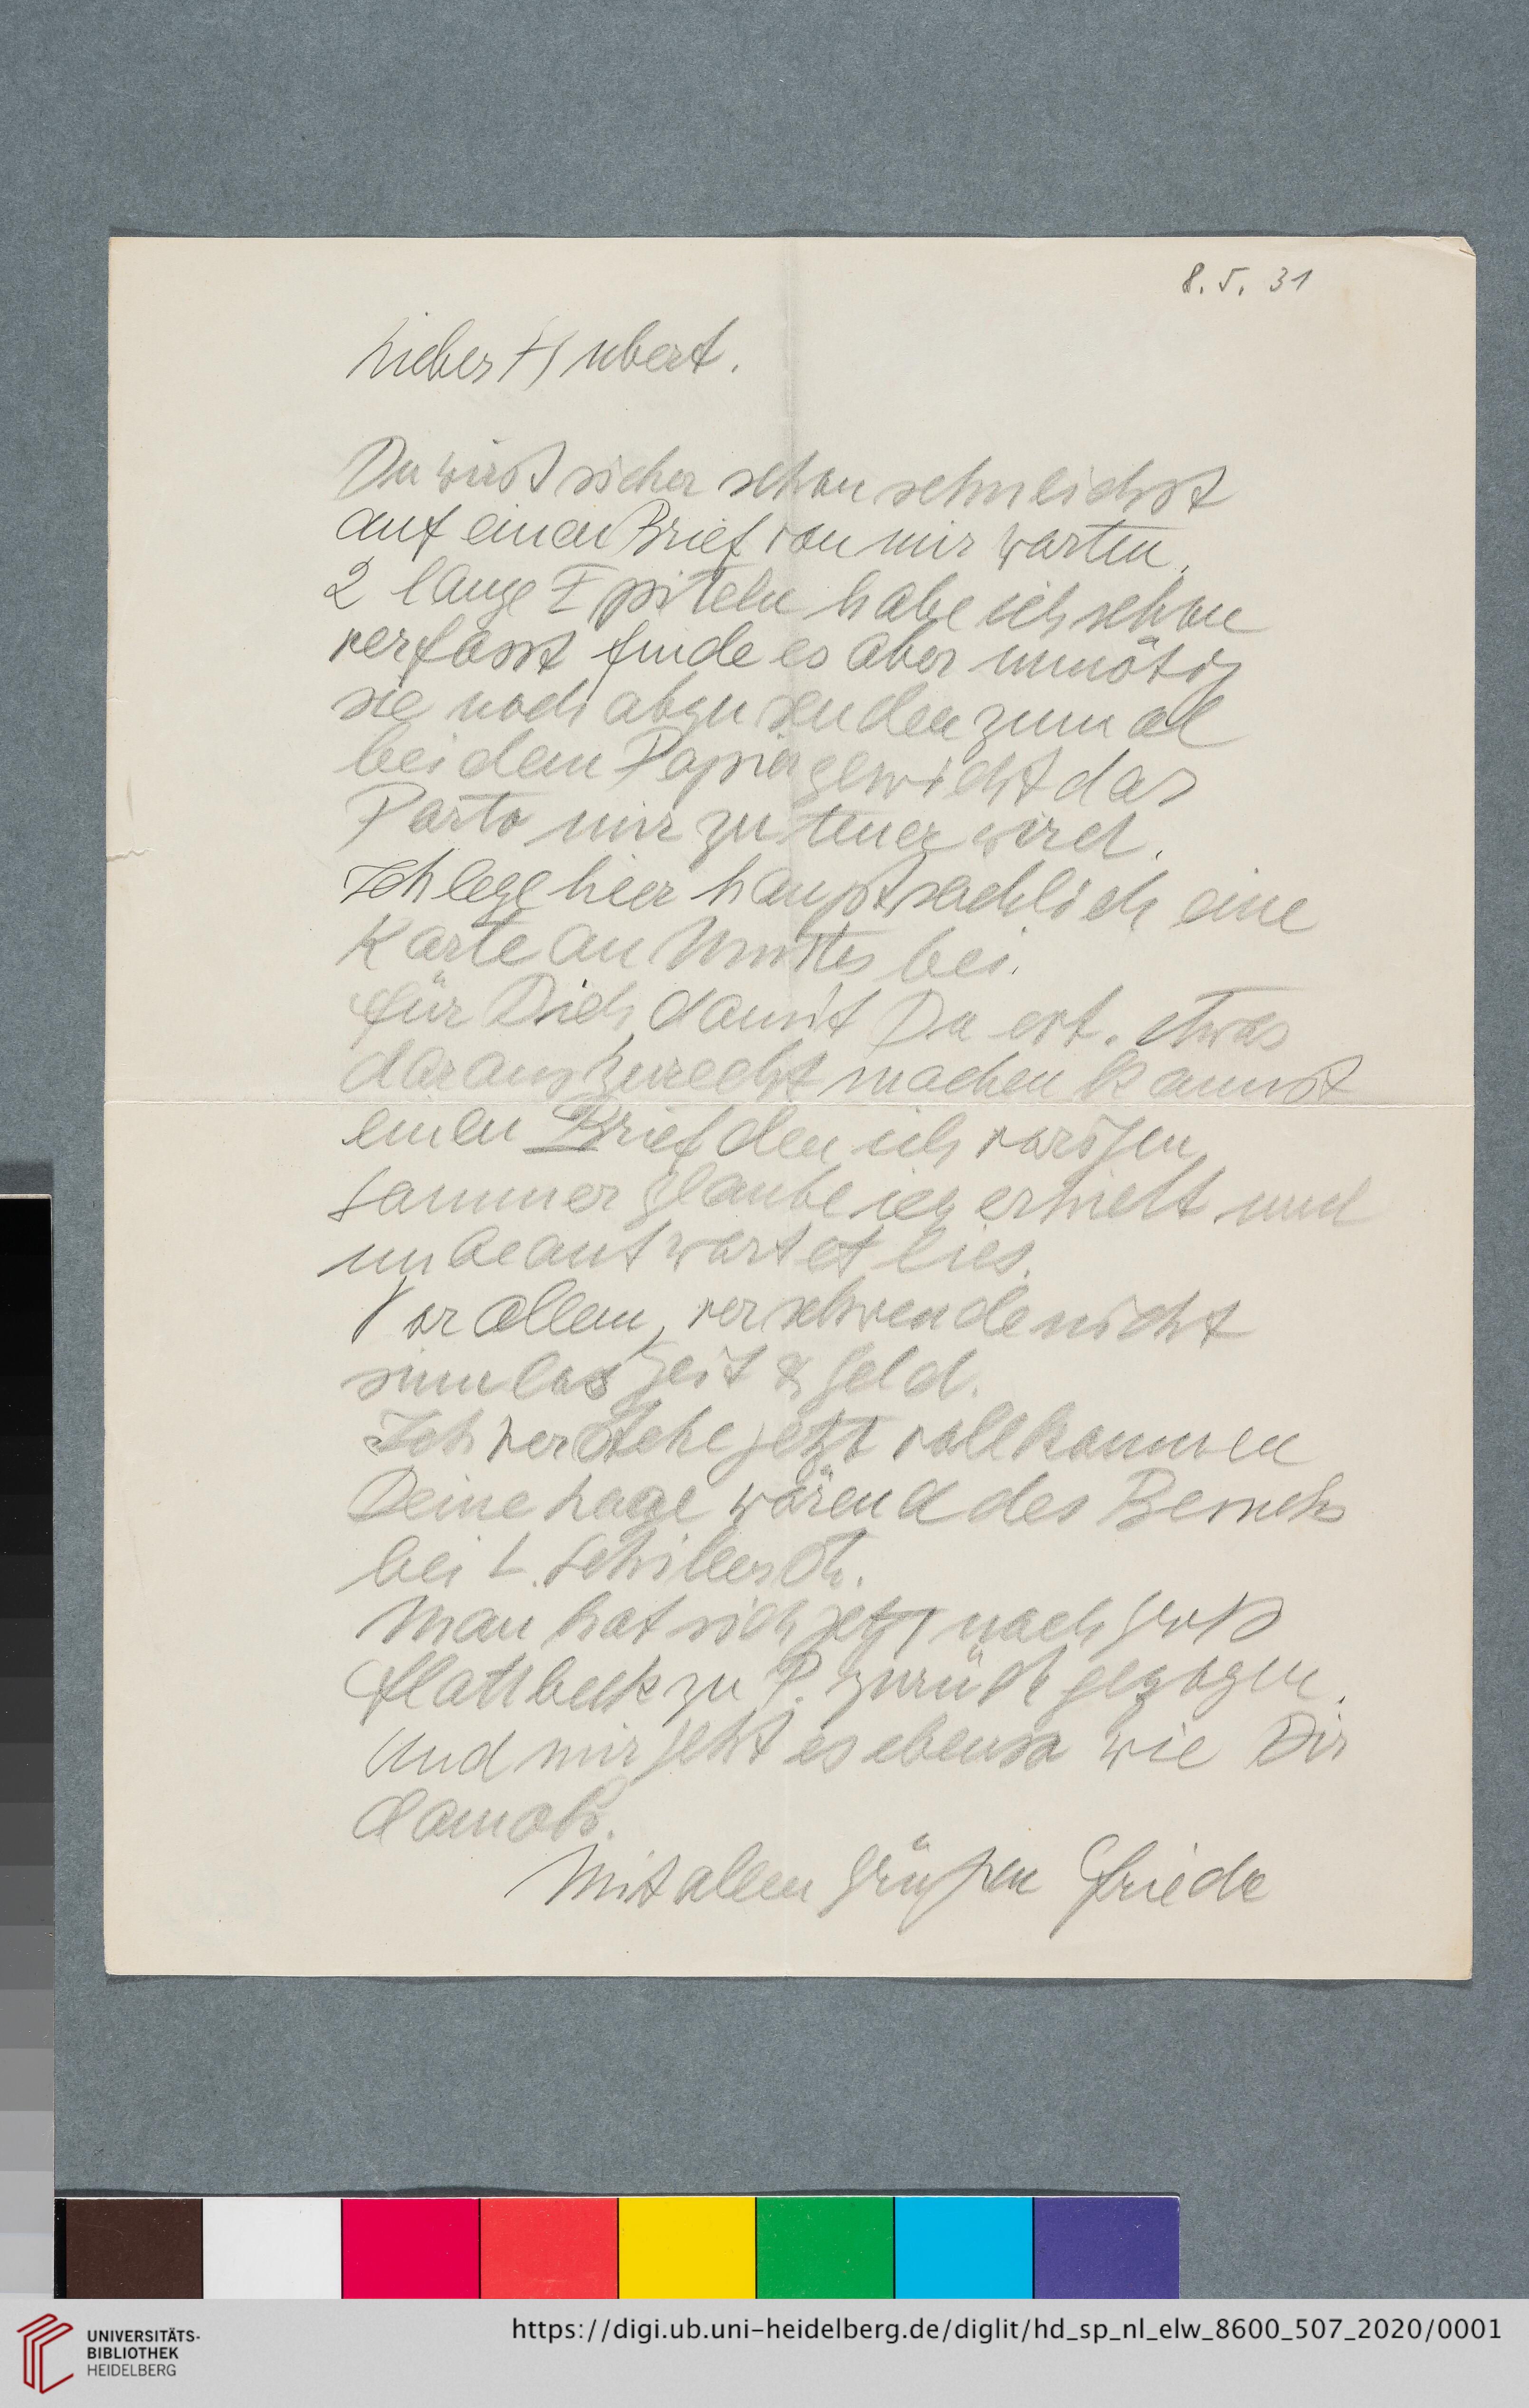 8. 5. 31
Lieber Hubert.
Du wirst sicher schon sehnlichst
auf einen Brief von mir warten.
2 lange Epiteln habe ich schon
verfasst finde es aber unnötig
sie noch abzusenden zumal
bei dem Papiergewicht das
Porto mir zu teuer wird.
Ich lege hier hauptsächlich eine
Karte an bei.
für Dich damit Du evt. etwas
daraus zurecht machen kannst
einen Brief den ich vorigen
Sommer glaube ich erhielt und
unbeantwortet lies.
Vor allem, verschwende nicht
sinnlos Zeit & Geld.
Ich verstehe jetzt vollkommen
Deine Lage wärend des Besuchs
bei L. Schillerstr.
Man hat sich jetzt nach Groß
Flottbeck zu P. zurückgezogen.
Und mir geht es ebenso wie Dir
damals.
Mit allen Grüßen Friede
UNIVERSITÄTS-
BIBLIOTHEK
HEIDELBERG
https://digi.ub.uni-heidelberg.de/diglit/hd_sp_nl_elw_8600_507_2020/0001